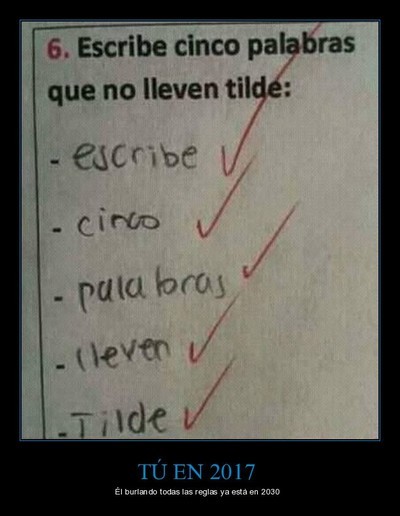 6. Escribe cinco palabras
que no lleven tilde:
- escribe
- cinco
- palabras
- lleven
- Tilde
TÚ EN 2017
Él burlando todas las reglas ya está en 2030